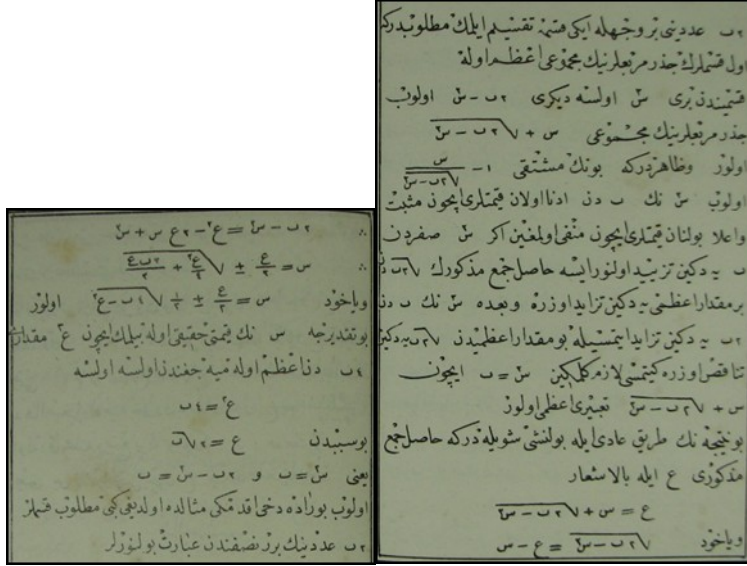 ٢ب عددینی بر وجهله ایکی قسمه تقسیم ایلمك مطلوبدرکه
اول قسملرك جذر مربعلرینك مجموعی اعظم اوله
قسمیندن بری سٓ اولسه دیکری ٢ب − سٓ اولوب
جذر مربعلرینك مجموعی س + √(٢ب − سٓ)
اولور وظاهردرکه بونك مشتقی ١ − س/√(٢ب−سٓ)
اولوب سٓ نك ب دن ادنا اولان قیمتلری ایچون مثبت
واعلا بولنان قیمتلری ایچون منفی اولمغین اکر سٓ صفردن
ب یه دکین تزیید اولنور ایسه حاصل جمع مذکور √٢ب
بر مقدار اعظمی یه دکین تزاید اوزره وبعده سٓ نك ب دن
٢ب یه دکین تزاید ایتمسیله بو مقدار اعظمیدن √٢ب یه دکین
تناقص اوزره کیتمسی لازم کلمکین سٓ = ب ایچون
س + √(٢ب − سٓ) تعبیری اعظمی اولور
بو نتیجه نك طریق عادی ایله بولنشی شویله درکه حاصل جمع
مذکوری ع ایله بالاشعار
ع = س + √(٢ب − سٓ)
ویاخود √(٢ب − سٓ) = ع − س
∴ ٢ب − سٓ = ع٢ − ٢ع س + سٓ
∴ س = ع/٢ ± √
ویاخود س = ع/٢ ± ١/٢ √(٤ب − ع٢) اولور
بو تقدیرجه س نك قیمتی حقیقی اوله بیلمك ایچون ع٢ مقداری
٤ب دن اعظم اوله میه جغندن اولسه اولسه
ع٢ = ٤ب
بو سببدن ع = ٢√ب
یعنی سٓ = ب و ٢ب − سٓ = ب
اولوب بوراده دخی اقدمکی مثالده اولدیغی کبی مطلوب قسملر
٢ب عددینك برر نصفندن عبارت بولنورلر